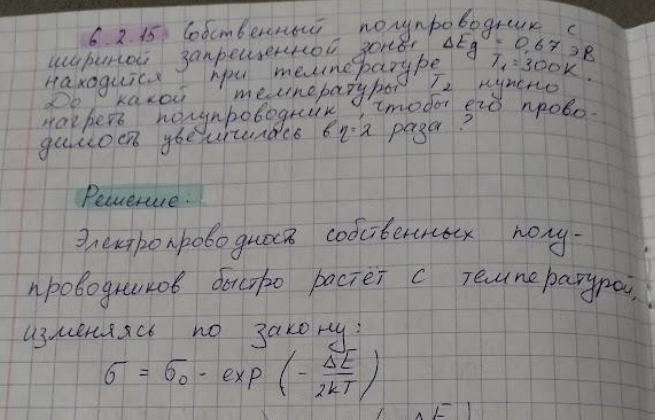 6.2.15 Собственный полупроводник с
шириной запрещенной зоны ΔEg = 0,67 эВ
находится при температуре T₁ = 300К.
До какой температуры T₂ нужно
нагреть полупроводник, чтобы его прово-
димость увеличилась в η=2 раза?
Решение:
Электропроводность собственных полу-
проводников быстро растёт с температурой,
изменяясь по закону:
σ = σ₀ - exp (- ΔE/2kT)